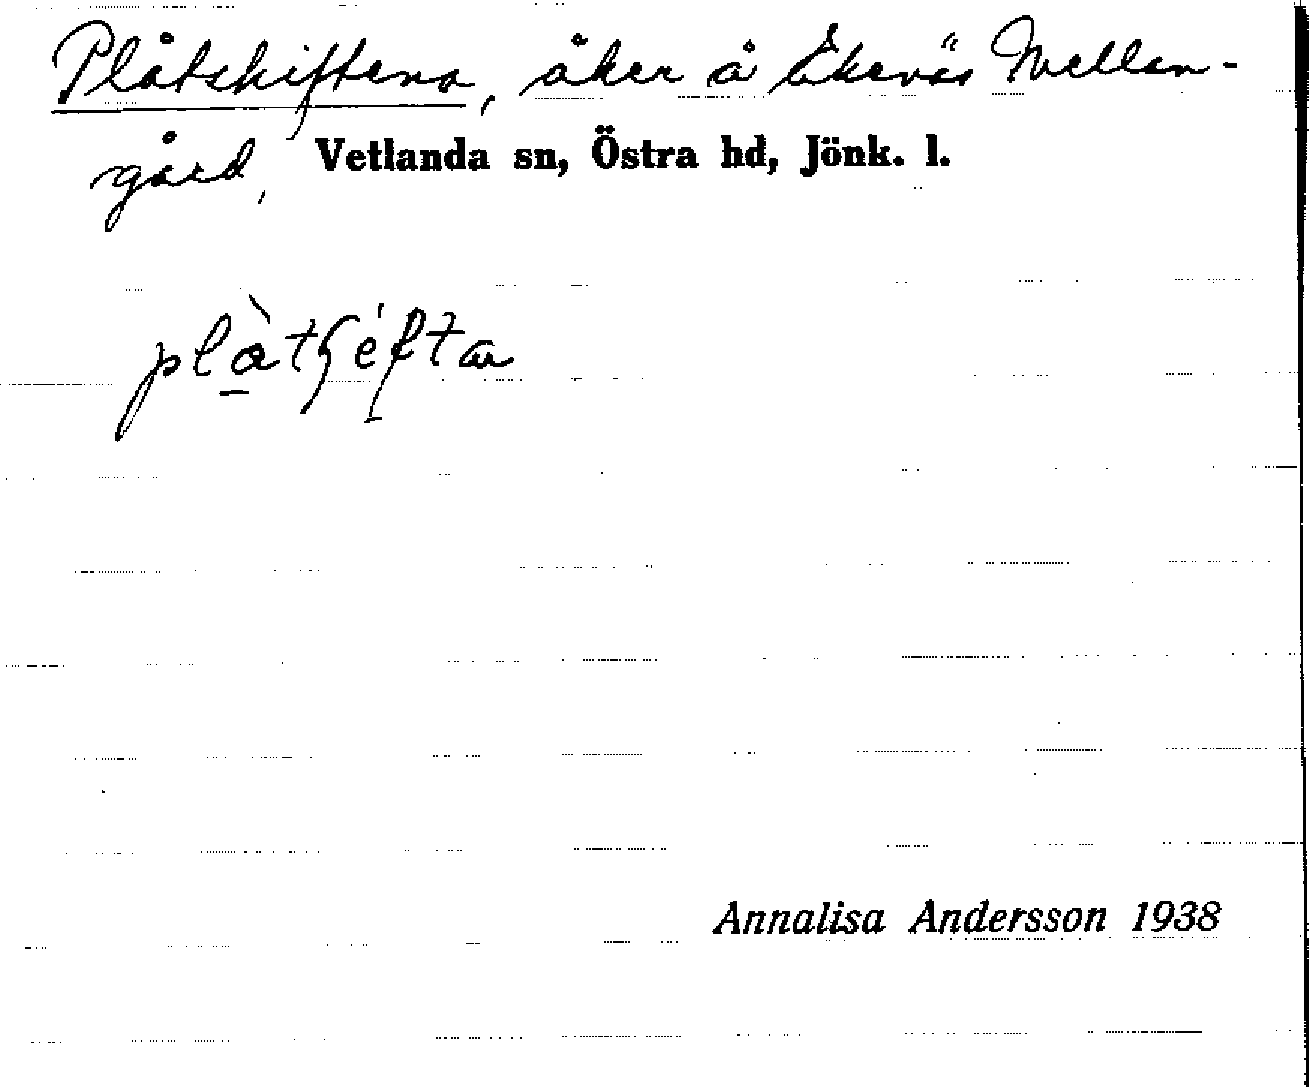 Plåtskiftena, åker å Ekenäs Mellan-
gård, Vetlanda sn, Östra hd, Jönk. l.
Annalisa Andersson 1938